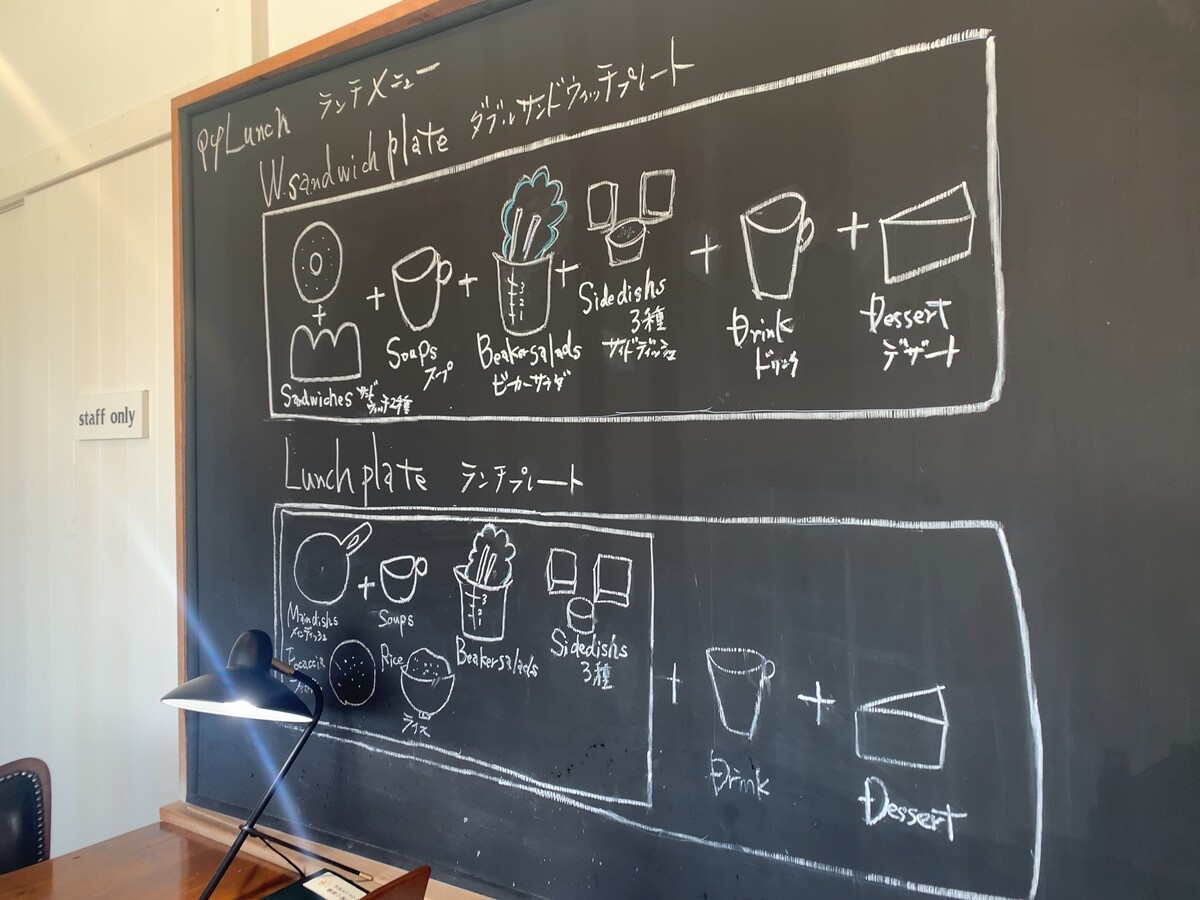 Lunch ランチメニュー
W.sandwich plate ダブルサンドウィッチプレート
+
+
+
+
+
+
Sandwiches サンドウィッチ2種
Soups
スープ
3
2
1
Beakersalads
ビーカーサラダ
Sidedishs
3種
サイドディッシュ
Drink
ドリンク
Dessert
デザート
staff only
Lunch plate ランチプレート
+
Maindishs
メインディッシュ
Soups
3
2
1
Beakersalads
Sidedishs
3種
Focaccia
Rice
ライス
+
Drink
+
Dessert